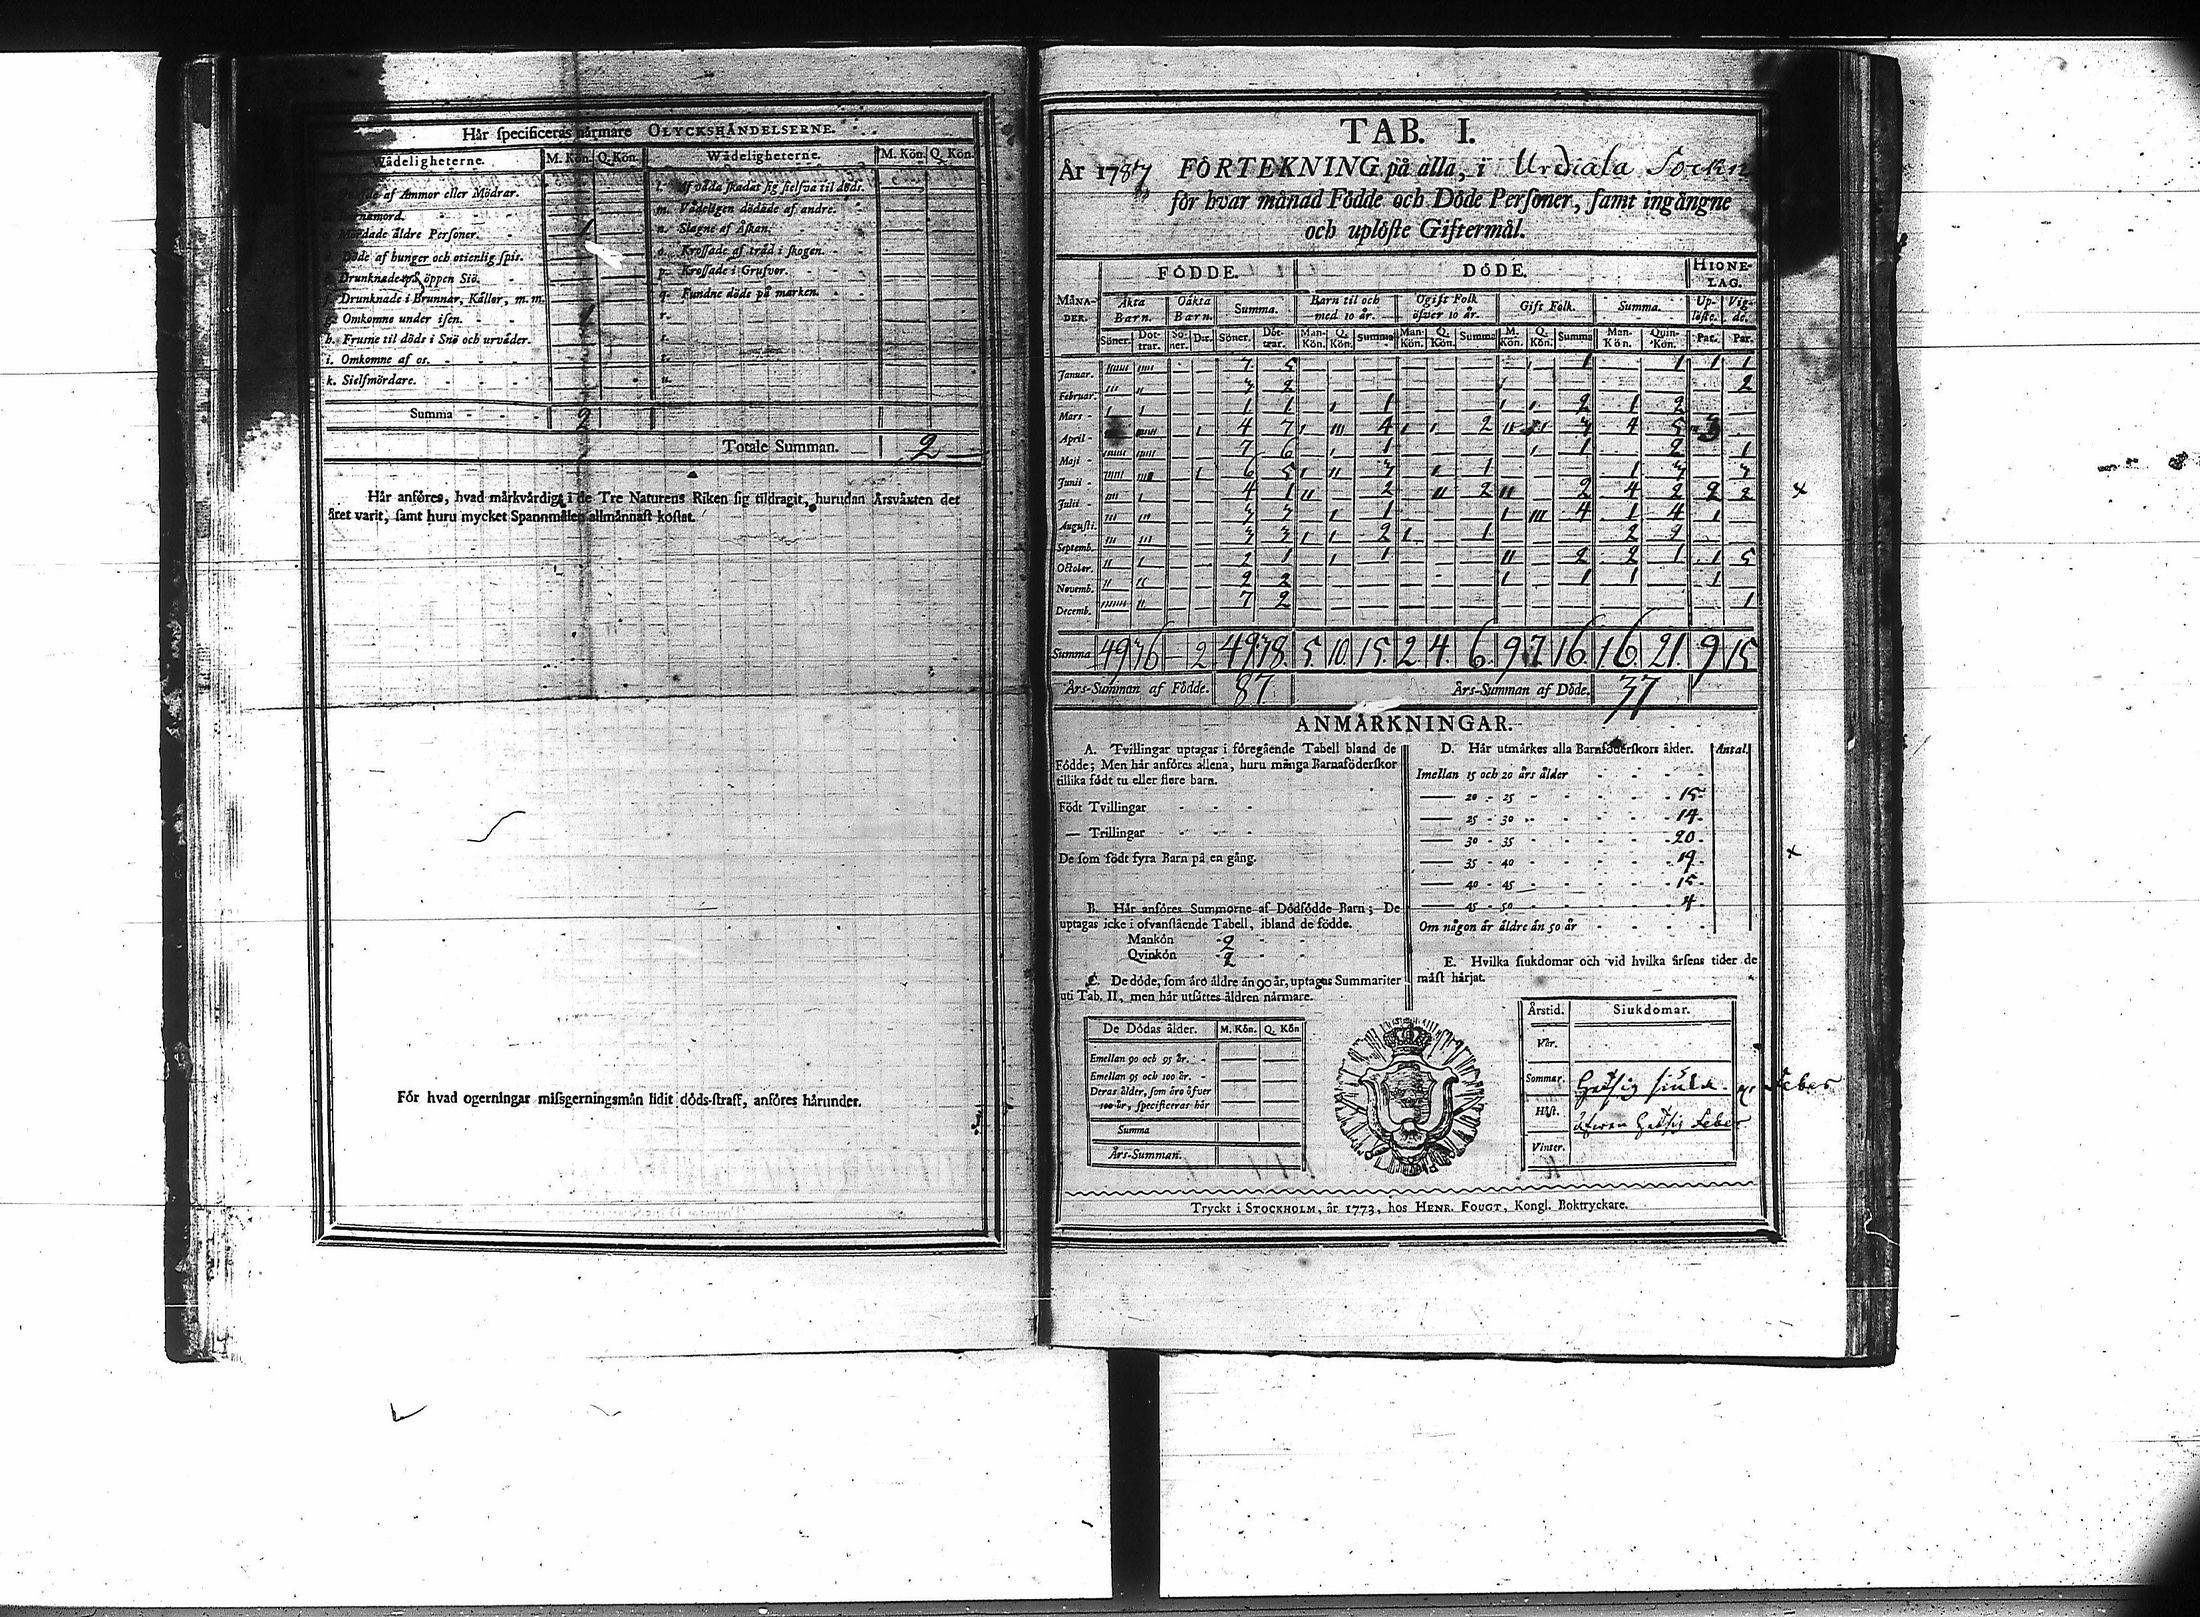 Hår specificeras nårmare OLYCKSHÅNDELSERNE.
Wådeligheterne. M. Kön. Q. Kön. Wådeligheterne. M. Kön. Q. Kön.
af Ammor eller Mödrar.
l. Af våda skadat sig sielfva til döds.
m. Vådeligen dödade af andre.
Mördade äldre Personer. 1
n. Slagne af Åskan.
Döde af hunger och otienlig spis.
o. Krossade af tråd i skogen.
Drunknade på öppen Siö.
p. Krossade i Grufvor.
f. Drunknade i Brunnar, Kållor, m. m.
q. Fundne döde på marken.
g. Omkomne under isen. 1
r.
h. Frusne til döds i Snö och urväder.
s.
i. Omkomne af os.
t.
k. Sielfmördare.
u.
Summa 2
Totale Summan. 2
Hår anföres, hvad mårkvårdigt i de Tre Naturens Riken sig tildragit, hurudan Årsvåxten det
året varit, samt huru mycket Spannmålen allmånnast kostat.
För hvad ogerningar missgerningsmån lidit döds-straff, anföres hårunder.
TAB. I.
År 1787 FÖRTEKNING på alla, i Urdiala Sockn
för hvar månad Födde och Döde Personer, samt ingångne
och uplöste Giftermål.
MÅNADER. FÖDDE. DÖDE. HIONELAG.
Åkta Barn. Oåkta Barn. Summa. Barn til och med 10 år. Ogift Folk öfver 10 år. Gift Folk. Summa. Uplöste. Vigde.
Söner. Döttrar. Söner. Dit. Söner. Döttrar. Man-Kön. Q. Kön. Summa Man-Kön. Q. Kön. Summa M. Kön. Q. Kön. Summa Man-Kön. Qvin-Kön. Par. Par.
Januar. 7 5 1 1 1 1
Februar. 3 2 2
Mars 1 1 1 2 1 2
April 4 7 4 2 3 4 5 3
Maji 7 6 1 1 2 1
Junii 6 5 3 1 1 3 3
Julii 4 1 2 2 2 4 2 2 2
Augusti. 3 3 1 4 1 4 1
Septemb. 3 3 2 1 2 2
October. 2 1 1 2 2 1 1 5
Novemb. 2 2 1 1 1
Decemb. 7 2 1
Summa 49 36 2 49 38. 5. 10. 15. 2. 4. 6. 9 7 16. 16. 21. 9 15
Års-Summan af Födde. 87. Års-Summan af Döde. 37
ANMÅRKNINGAR.
A. Tvillingar uptagas i föregående Tabell bland de
Födde; Men hår anföres allena, huru många Barnaföderskor
tillika födt tu eller flere barn.
Födt Tvillingar
— Trillingar
De som födt fyra Barn på en gång.
B. Hår anföres Summorne af Dödfödde Barn; De
uptagas icke i ofvanstående Tabell, ibland de födde.
Mankön 2
Qvinkön 2
C. De döde, som åro åldre ån 90 år, uptagas Summariter
uti Tab. II, men hår utsåttes åldren nårmare.
De Dödas ålder. M. Kön. Q. Kön
Emellan 90 och 95 år.
Emellan 95 och 100 år.
Deras ålder, som åro öfver
100 år, specificeras hår
Summa
Års-Summan.
D. Hår utmårkes alla Barnföderskors ålder. Antal.
Imellan 15 och 20 års ålder
20 - 25 15
25 - 30 14
30 - 35 20
35 - 40 19
40 - 45 15
45 - 50 4
Om någon år åldre ån 50 år
E. Hvilka siukdomar och vid hvilka årsens tider de
måst hårjat.
Årstid. Siukdomar.
Vår.
Sommar. Hetsig siuka feber
Höst. Hetsig feber
Vinter.
Tryckt i STOCKHOLM, år 1773, hos HENR. FOUGT, Kongl. Boktryckare.